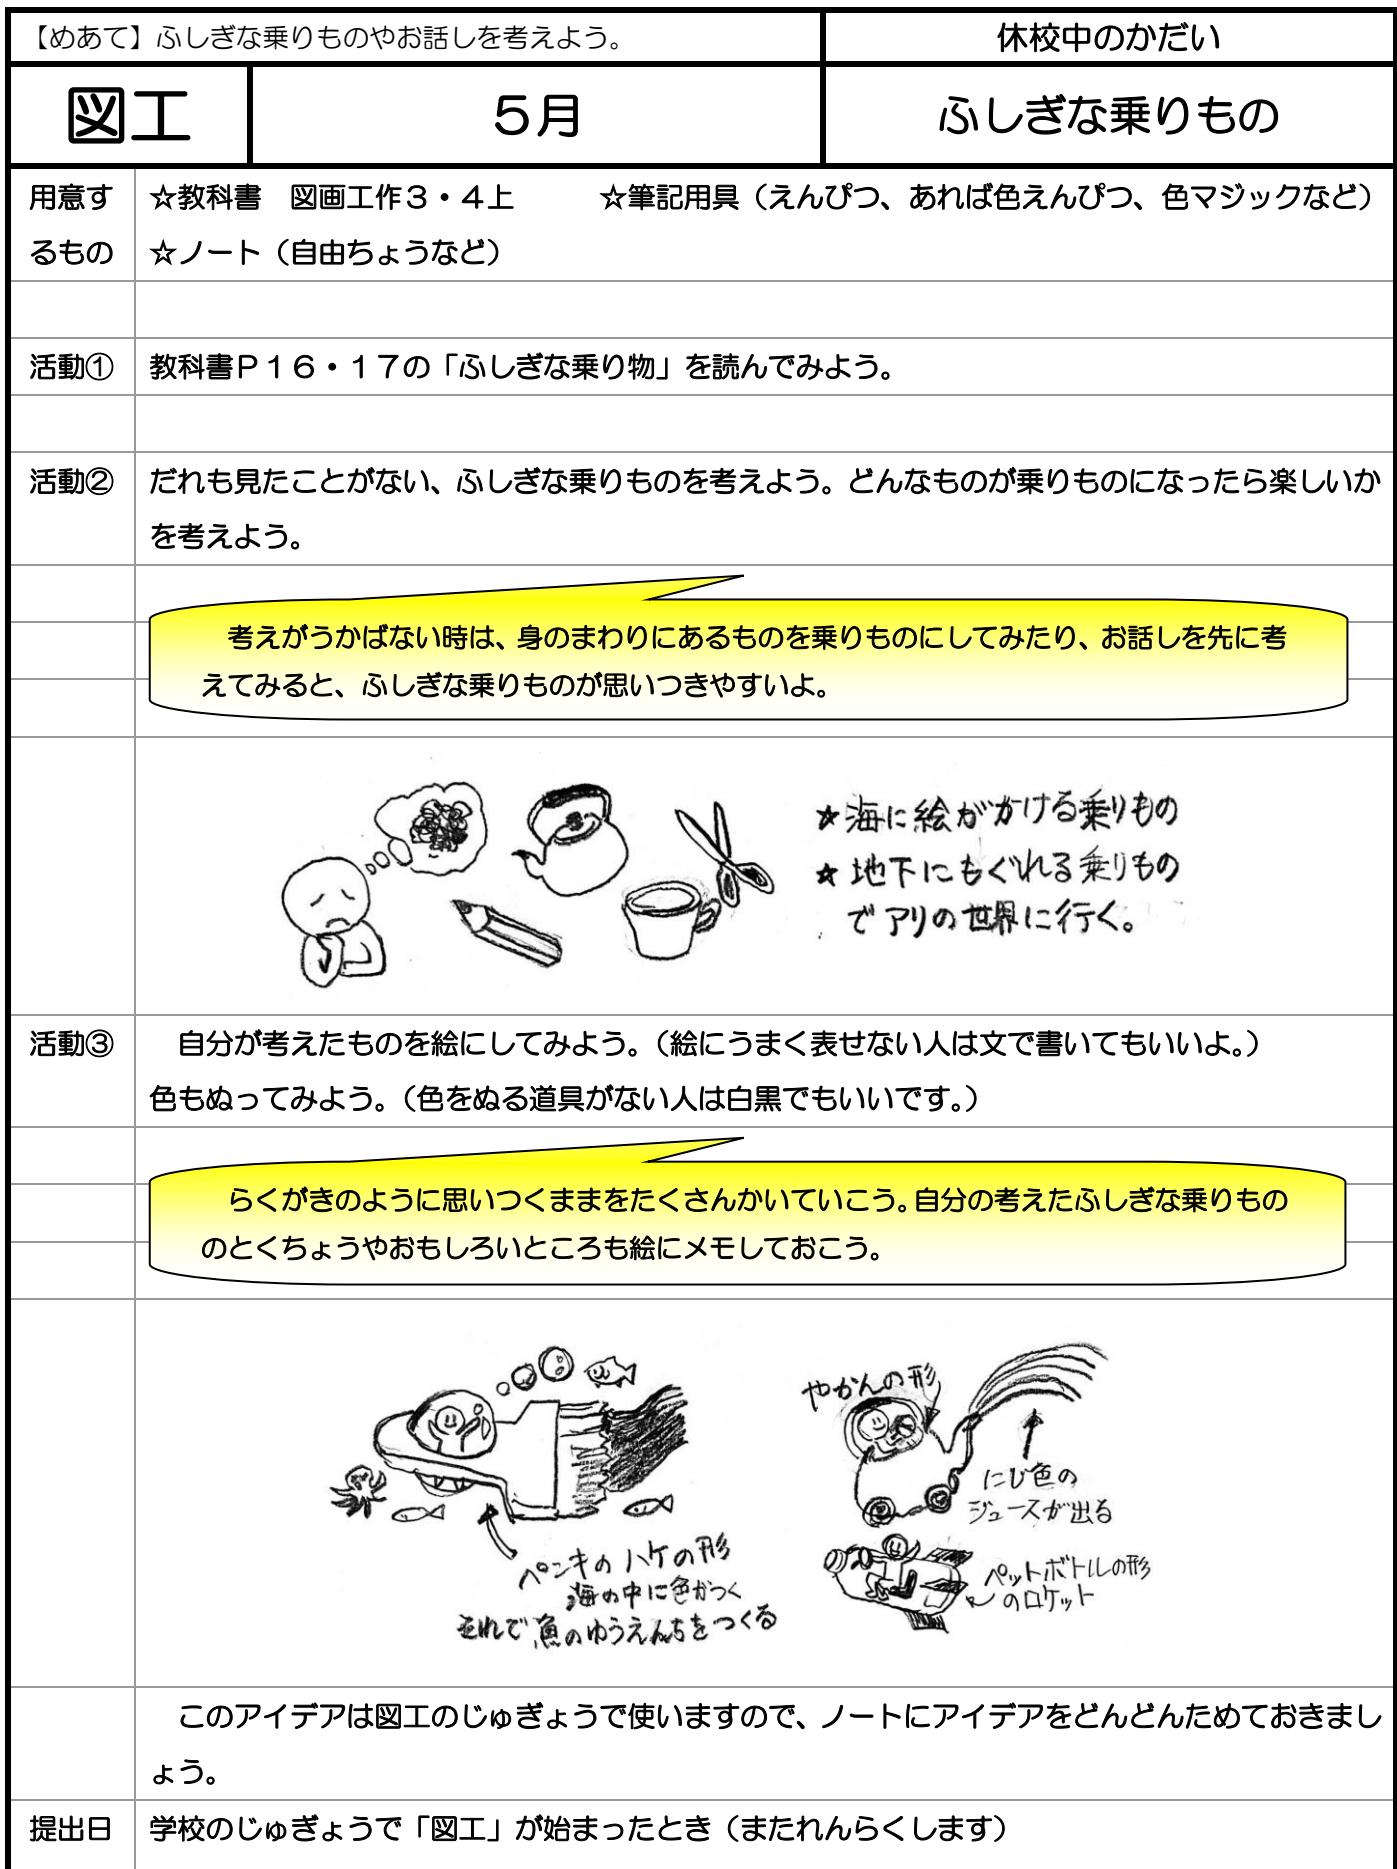 【めあて】ふしぎな乗りものやお話しを考えよう。
休校中のかだい
図工
５月
ふしぎな乗りもの
用意す
るもの
☆教科書　図画工作３・４上　　　☆筆記用具（えんぴつ、あれば色えんぴつ、色マジックなど）
☆ノート（自由ちょうなど）
活動①
教科書Ｐ１６・１７の「ふしぎな乗り物」を読んでみよう。
活動②
だれも見たことがない、ふしぎな乗りものを考えよう。どんなものが乗りものになったら楽しいか
を考えよう。
考えがうかばない時は、身のまわりにあるものを乗りものにしてみたり、お話しを先に考
えてみると、ふしぎな乗りものが思いつきやすいよ。
★海に絵がかける乗りもの
★地下にもぐれる乗りもの
でアリの世界に行く。
活動③
自分が考えたものを絵にしてみよう。（絵にうまく表せない人は文で書いてもいいよ。）
色もぬってみよう。（色をぬる道具がない人は白黒でもいいです。）
らくがきのように思いつくままをたくさんかいていこう。自分の考えたふしぎな乗りもの
のとくちょうやおもしろいところも絵にメモしておこう。
ペンキのハケの形
海の中に色がつく
それで魚のゆうえんちをつくる
やかんの形
にじ色の
ジュースが出る
ペットボトルの形
のロケット
このアイデアは図工のじゅぎょうで使いますので、ノートにアイデアをどんどんためておきまし
ょう。
提出日
学校のじゅぎょうで「図工」が始まったとき（またれんらくします）